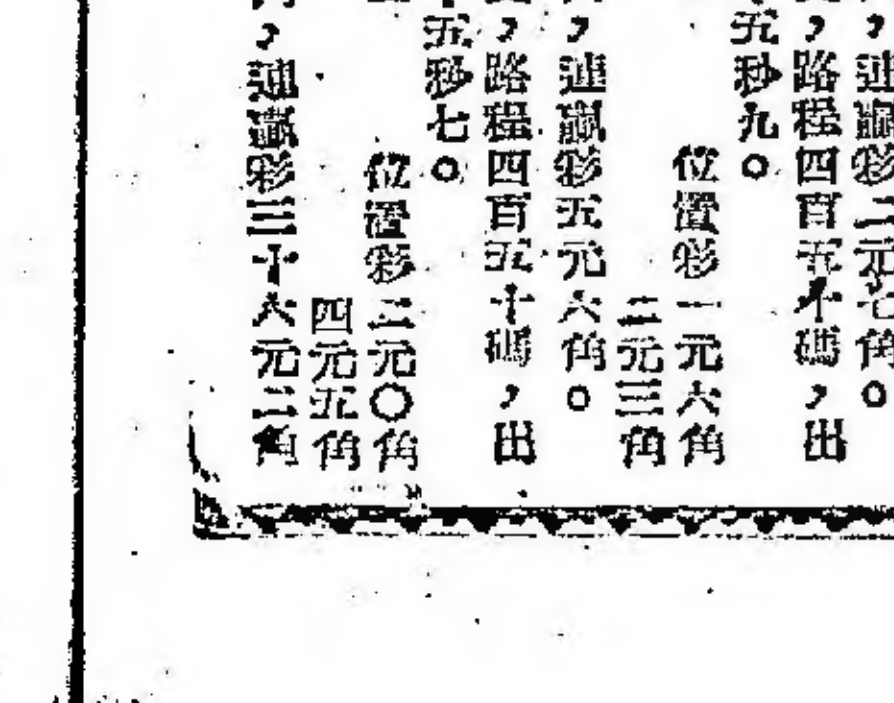 ，連贏彩二元七角。
，路程四百五十碼，出
五秒九。
位置彩一元六角
二元三角
，連贏彩五元六角。
，路程四百五十碼，出
五秒七。
位置彩二元〇角
四元五角
，連贏彩三十六元二角